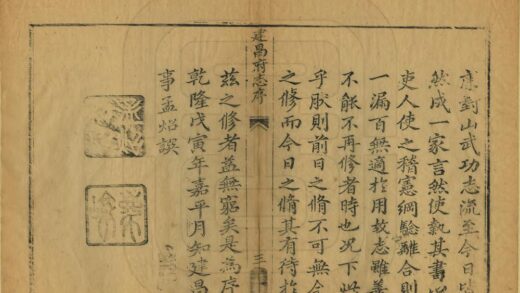 康對山武功志流至今日
然成一家言然使執其書以
吏人使之稽憲綱驗離合則
一漏百無適於用故志雖善
不能不再修者時也況下此
乎然則前日之脩不可無今
之修而今日之脩其有待於
建昌府志序
三
茲之修者益無窮矣是為序
乾隆戊寅年嘉平月知建昌
事孟炤譔